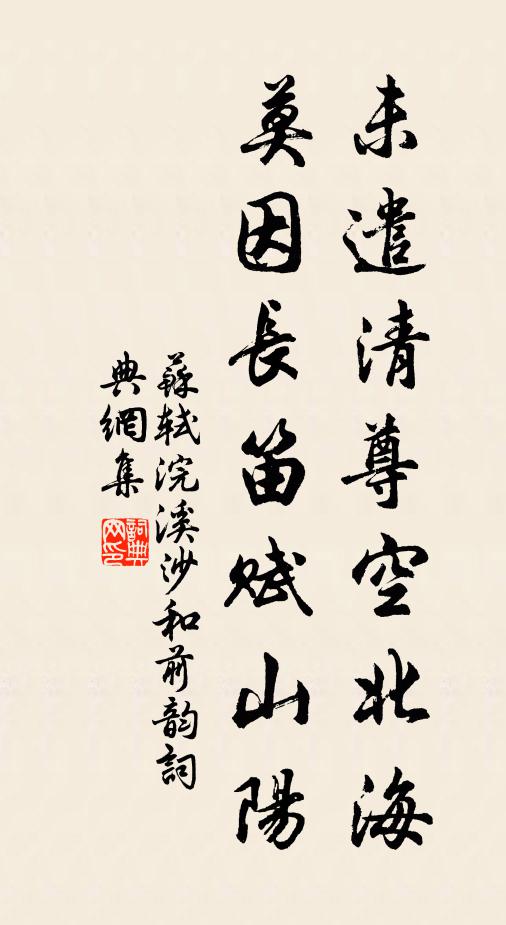 未遣清尊空北海
莫因長笛賦山陽
蘇軾浣溪沙和前韵詞
典網集
詞典網印